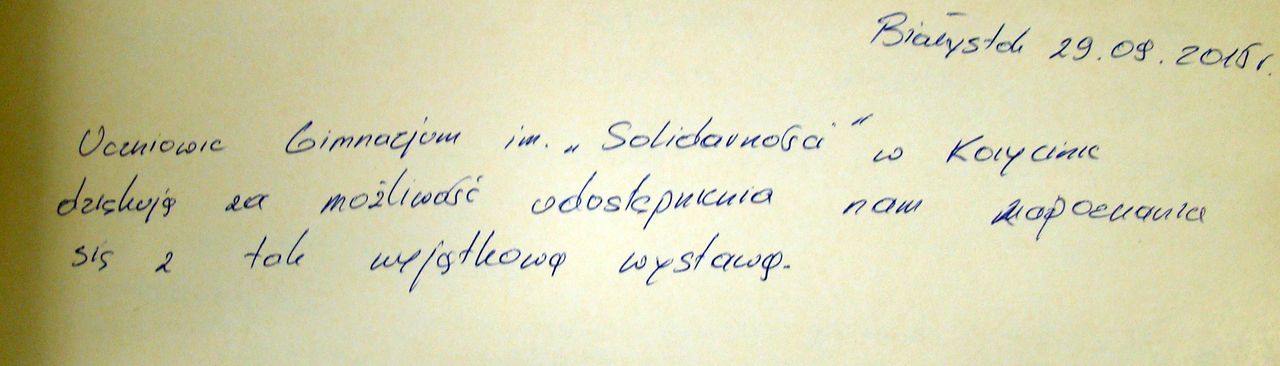 Białystok 29.09.2015r.
Uczniowie Gimnazjum im. „Solidarności” w Korycinie
dziękują za możliwość udostępnienia nam zapoznania
się z tak wyjątkową wystawą.